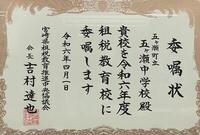 委嘱状
五ヶ瀬町立
五ヶ瀬中学校 殿
貴校を令和六年度
租税教育校に
委嘱します
令和六年四月一日
宮崎県租税教育推進市央協議会
会長 吉村達也